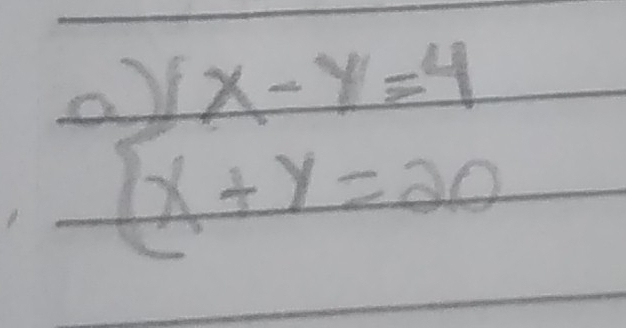 a) { x - y = 4
x + y = 20